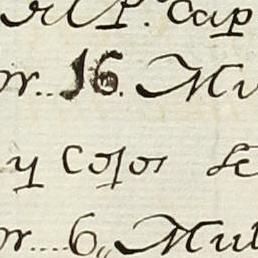 R. P. Cap
or... 16. Mu
y Cojos de
or.... 6,, Mul